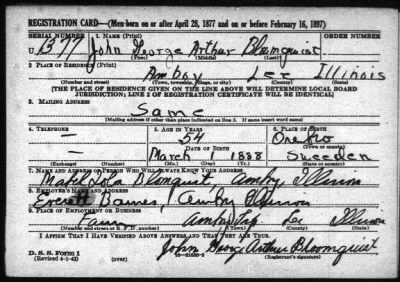 REGISTRATION CARD—(Men born on or after April 28, 1877 and on or before February 16, 1897)
SERIAL NUMBER 1. NAME (Print) ORDER NUMBER
U 1377 John George Arthur Blomquist
(First) (Middle) (Last)
2. PLACE OF RESIDENCE (Print)
Amboy Lee Illinois
(Number and street) (Town, township, village, or city) (County) (State)
[THE PLACE OF RESIDENCE GIVEN ON THE LINE ABOVE WILL DETERMINE LOCAL BOARD
JURISDICTION; LINE 2 OF REGISTRATION CERTIFICATE WILL BE IDENTICAL]
3. MAILING ADDRESS
Same
[Mailing address if other than place indicated on line 2. If same insert word same]
4. TELEPHONE 5. AGE IN YEARS 6. PLACE OF BIRTH
— 54 Orebro
DATE OF BIRTH (Town or county)
— March 1888 Sweeden
(Exchange) (Number) (Mo.) (Day) (Yr.) (State or country)
7. NAME AND ADDRESS OF PERSON WHO WILL ALWAYS KNOW YOUR ADDRESS
Blomquist Amboy, Illinois
8. EMPLOYER'S NAME AND ADDRESS
Everett Barnes, Amboy Illinois
9. PLACE OF EMPLOYMENT OR BUSINESS
Farm Amboy Twp. Lee Illinois
(Number and street or R. F. D. number) (Town) (County) (State)
I AFFIRM THAT I HAVE VERIFIED ABOVE ANSWERS AND THAT THEY ARE TRUE.
D. S. S. Form 1
(Revised 4-1-42) (over)
John George Arthur Bloomquist
(Registrant's signature)